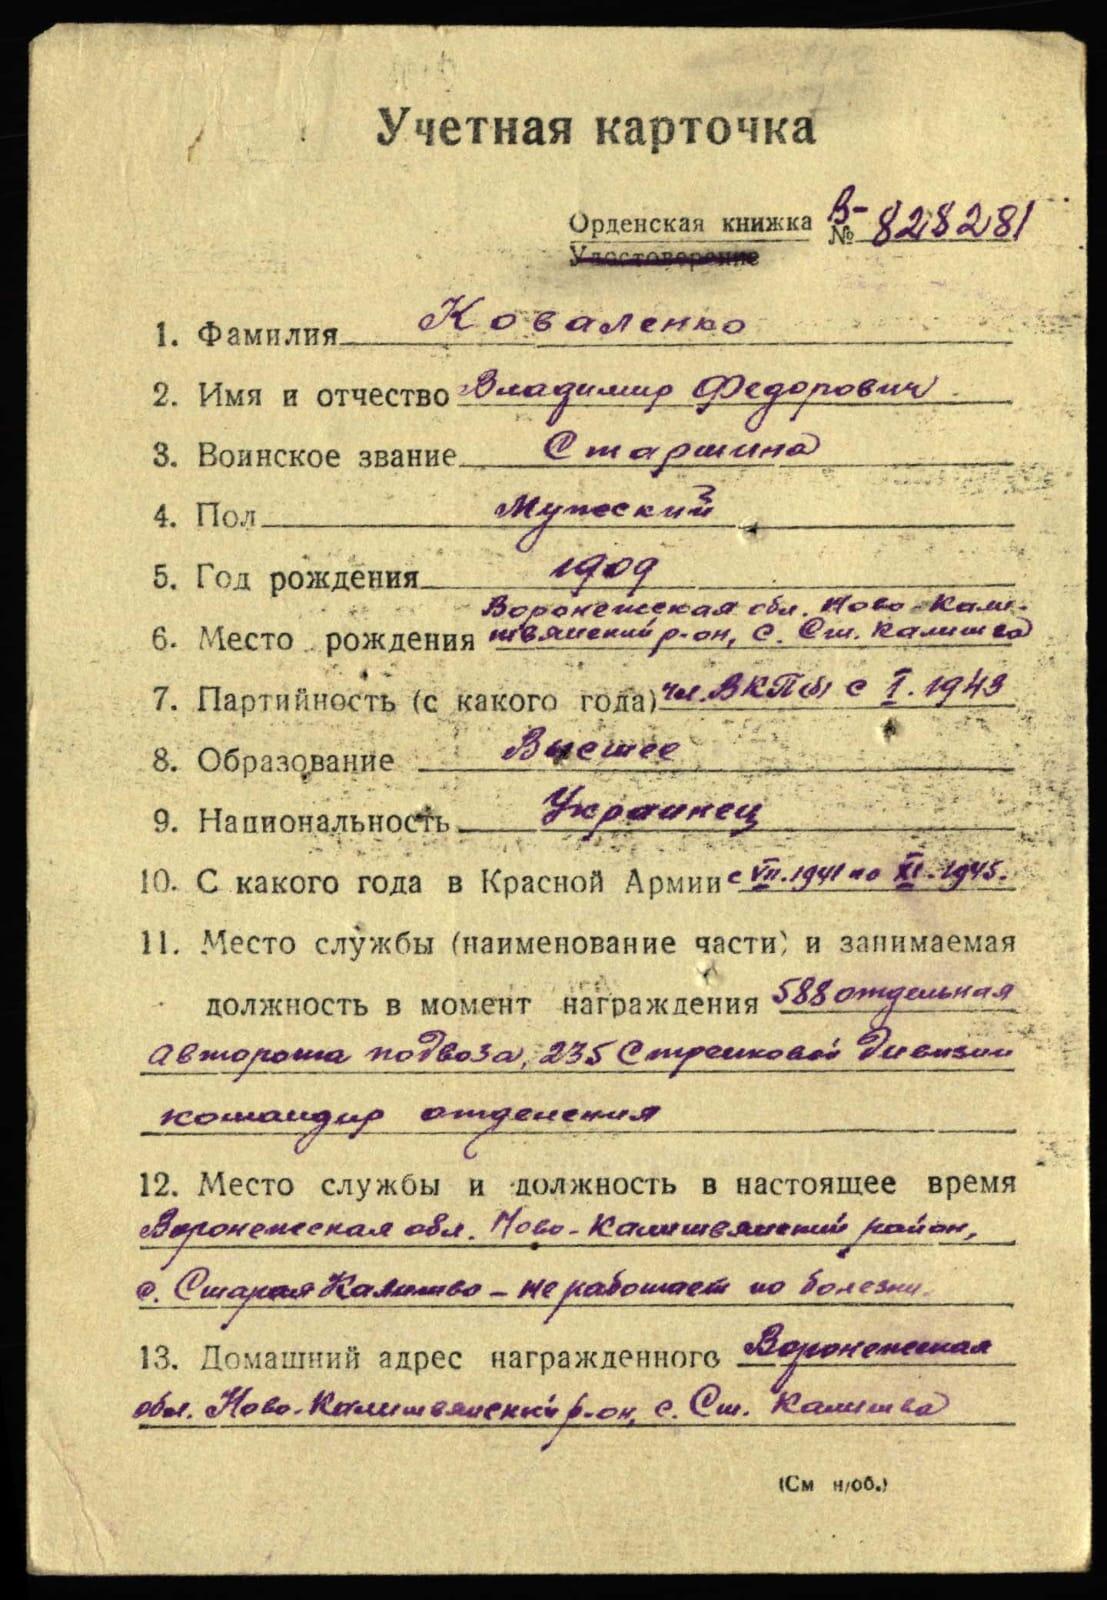 Учетная карточка
Орденская книжка В-№ 828281
Удостоверение
1. Фамилия Коваленко
2. Имя и отчество Владимир Федорович
3. Воинское звание Старшина
4. Пол Мужеский
5. Год рождения 1909
Воронежская обл. Ново-Кали-
6. Место рождения твянский р-он, с. Ст. Калитва
7. Партийность (с какого года) чл. ВКП(б) с I. 1943
8. Образование Высшее
9. Национальность Украинец
10. С какого года в Красной Армии с VII. 1941 по XI. 1945.
11. Место службы (наименование части) и занимаемая
должность в момент награждения 588 отдельная
авторота подвоза, 235 Стрелковой дивизии
командир отделения
12. Место службы и должность в настоящее время
Воронежская обл. Ново-Калитвянский район,
с. Старая Калитва – не работает по болезни.
13. Домашний адрес награжденного Воронежская
обл. Ново-Калитвянский р-он, с. Ст. Калитва
(См н/об.)